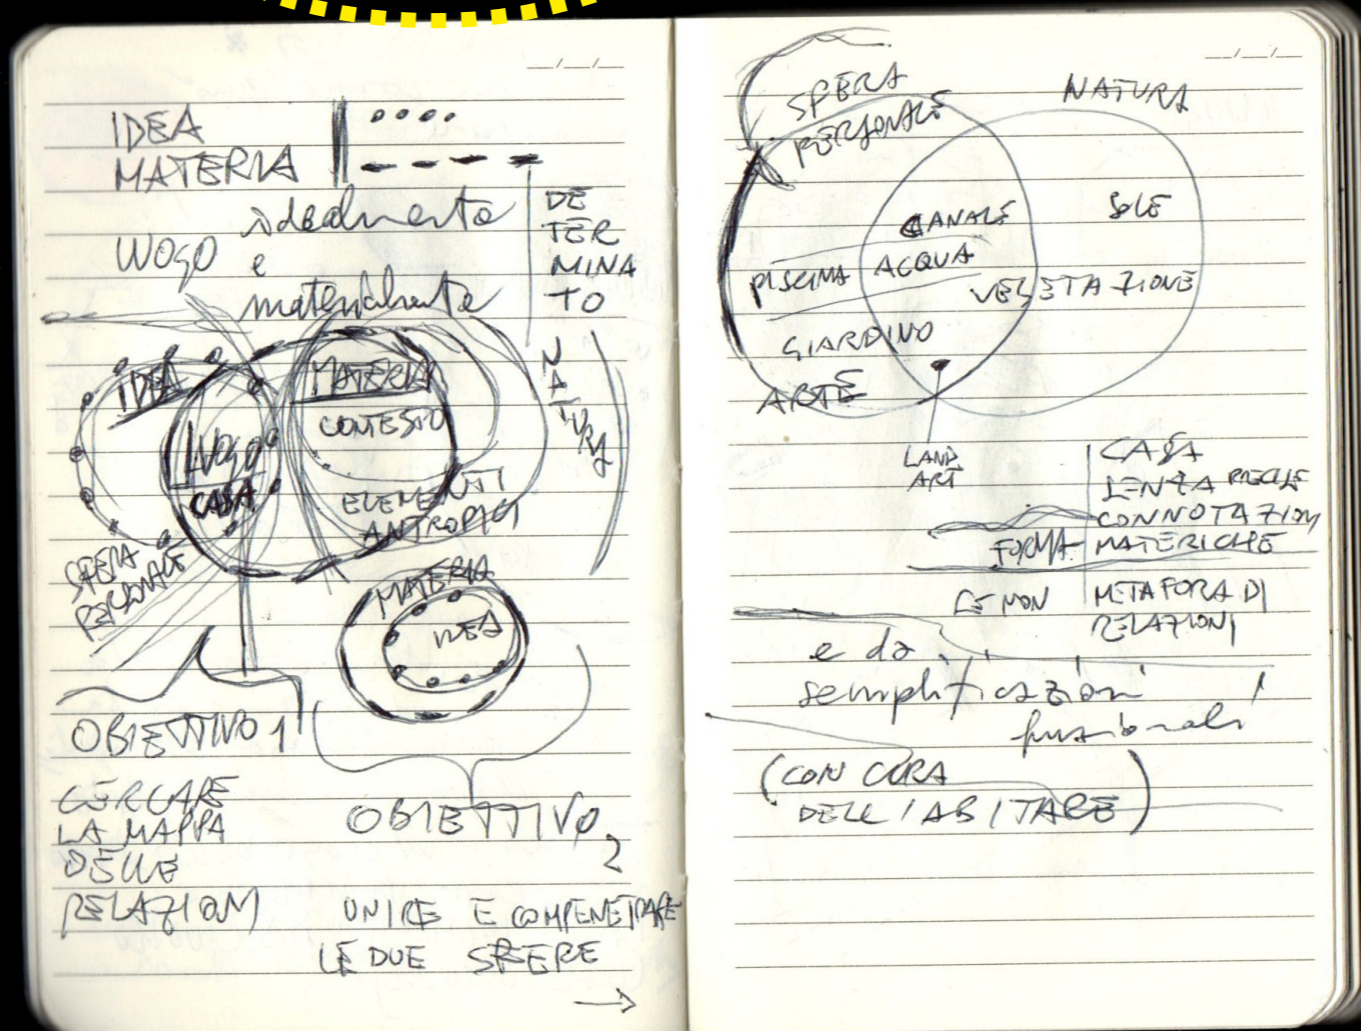 IDEA
MATERIA
LUOGO
idealmente
e
materialmente
DE
TER
MINA
TO
NATURA
IDEA
MATERIA
CONTESTO
LUOGO
CASA
ELEMENTI
ANTROPICI
SFERA
PERSONALE
MATERIA
IDEA
OBIETTIVO 1
CERCARE
LA MAPPA
DELLE
RELAZIONI
OBIETTIVO
2
UNIRE E COMPENETRARE
LE DUE SFERE
SFERA
PERSONALE
NATURA
CANALE
SOLE
PISCINA ACQUA
VEGETAZIONE
GIARDINO
ARTE
LAND
ART
CASA
SENZA PRECISE
CONNOTAZIONI
FORMA MATERICHE
SE NON METAFORA DI
RELAZIONI
e da
semplificazioni
funzionali
(CON CURA
DELL'ABITARE)